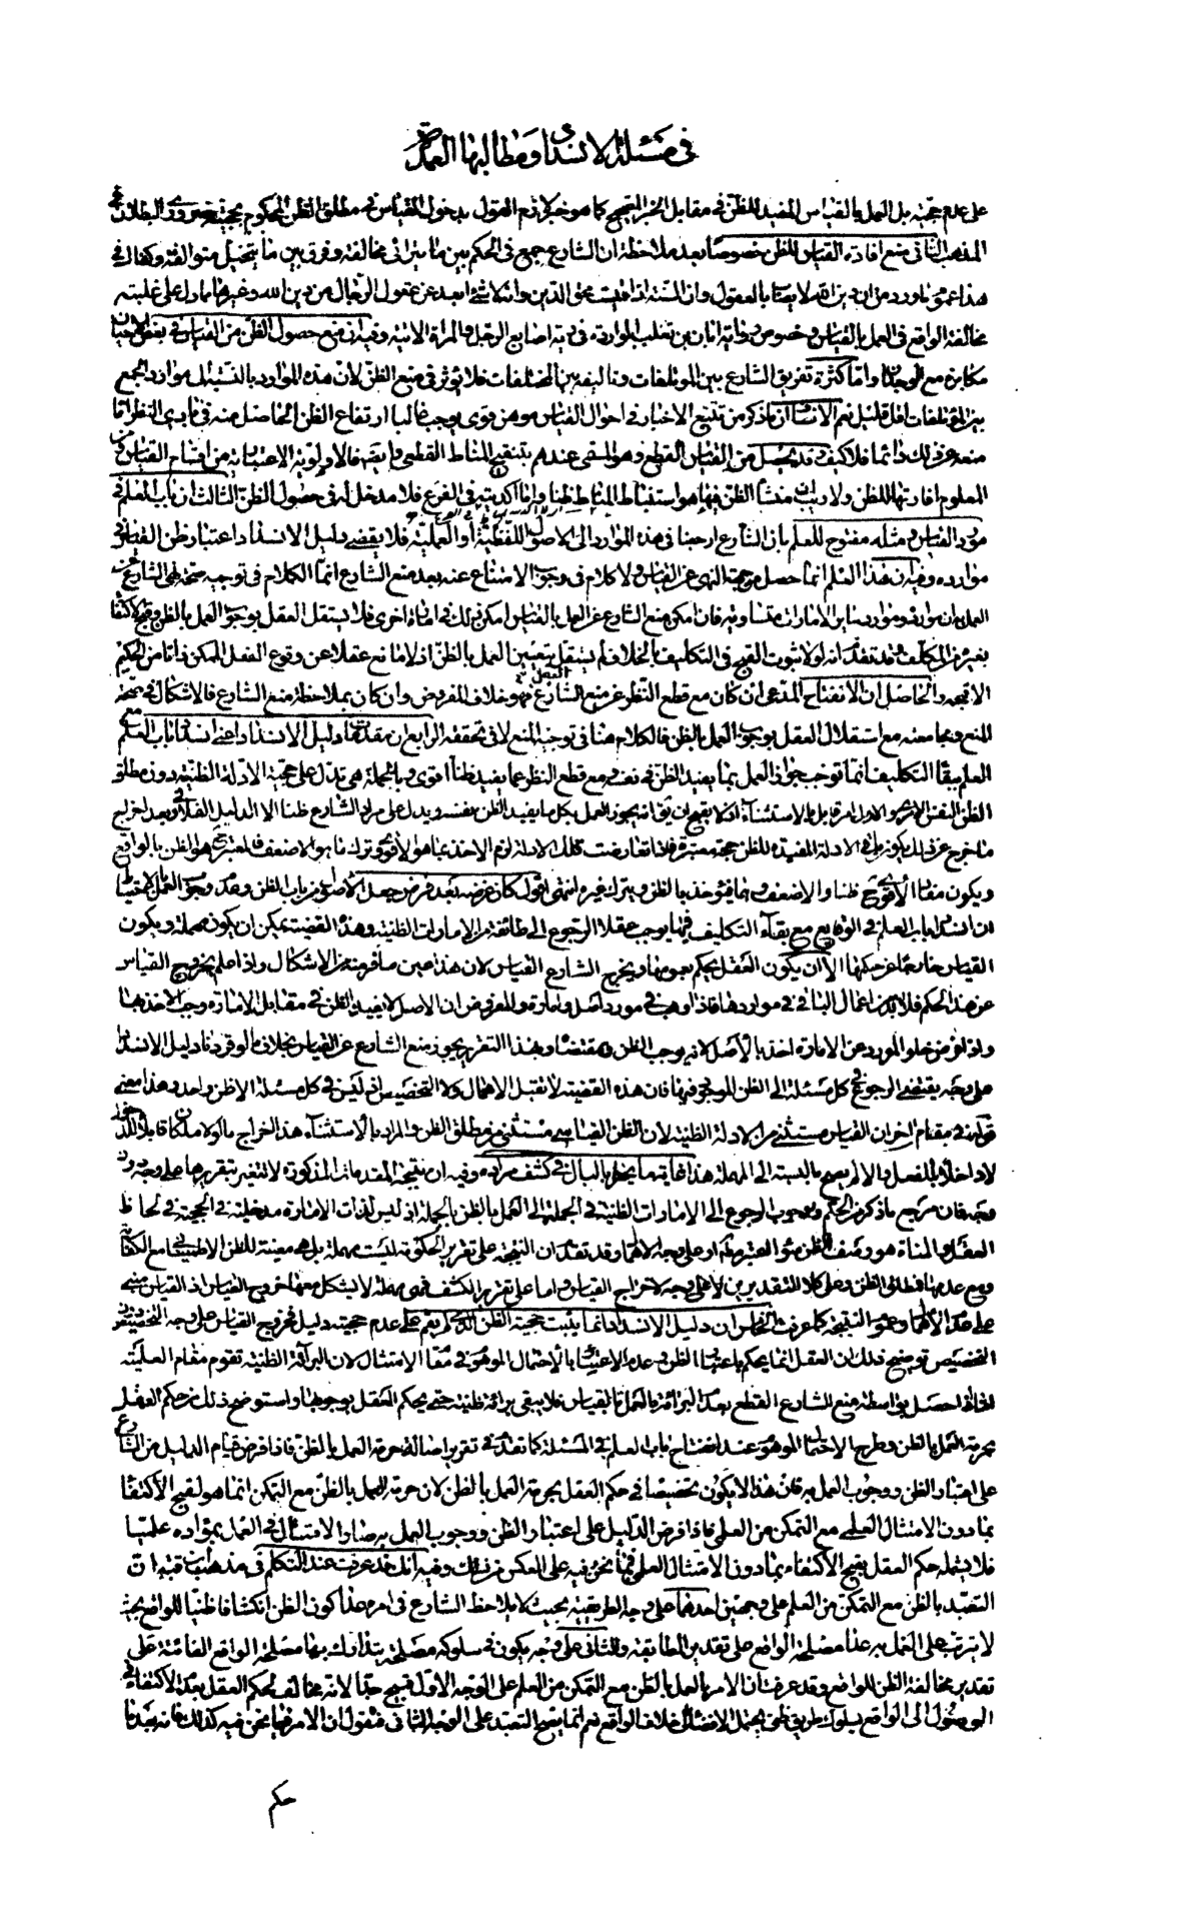 في مسئلة الانسداد ومطالبها العمدة
على عدم حجيته بل العمل بالقياس المفيد للظن في مقابل الخبر الصحيح كما هو لازم القول بدخول القياس في مطلق الظن المحكوم بحجيته ضروري البطلان في
المذهب الثاني منع افادة القياس للظن خصوصا بعد ملاحظة ان الشارع جمع في الحكم بين ما يترائى مخالفة وفرق بين ما يتخيل متوالفة وكفاك في
هذا عموم ما ورد من ان دين الله لا يصاب بالعقول وان السنة اذا قيست محق الدين وانه لا شئ ابعد عن عقول الرجال من دين الله وغيرها مما دل على غلبة
مخالفة الواقع في العمل بالقياس وخصوص رواية ابان بن تغلب الواردة في دية اصابع الرجل والمراة الاتية وفيه ان منع حصول الظن من القياس في بعض الاحيان
مكابرة مع الوجدان واما كثرة تفريق الشارع بين المؤتلفات وتاليفه بين المختلفات فلا يؤثر في منع الظن لان هذه الموارد بالنسبة الى موارد الجمع
بين المؤتلفات اقل قليل نعم الانصاف ان ما ذكر من تتبع الاخبار في احوال القياس موهن قوي يوجب غالبا ارتفاع الظن الحاصل منه في بادي النظر اما
منعه عن ذلك دائما فلا كيف وقد يحصل من القياس القطع وهو المسمى عندهم بتنقيح المناط القطعي وايضا فالاولوية الاعتبارية من اقسام القياس ومن
المعلوم افادتها للظن ولا ريب ان منشأ الظن فيها هو استنباط المناط ظنا واما اكديته في الفرع فلا مدخل له في حصول الظن الثالث ان باب العلم في
مورد القياس ومثله مفتوح للعلم بان الشارع ارجعنا في هذه الموارد الى الاصول اللفظية او العملية فلا يقضي دليل الانسداد اعتبار ظن القياس في
موارده وفيه ان هذا العلم انما حصل من جهة النهي عن القياس ولا كلام في وجوب الامتناع عنه بعد منع الشارع انما الكلام في توجيه صحة نهي الشارع عن
العمل به مع ان موارده وموارد سائر الامارات متساوية فان امكن منع الشارع عن العمل بالقياس امكن ذلك في امارة اخرى فلا يستقل العقل بوجوب العمل بالظن وقبح الاكتفاء
بغيره من المكلف وقد تقدم انه لولا ثبوت القبح في التكليف بالخلاف لم يستقل بتعين العمل بالظن اذ لا مانع عقلا عن وقوع الفعل الممكن ذاتا من الحكيم
الا قبحه والحاصل ان الانفتاح المدعى ان كان مع قطع النظر عن منع الشارع فهو خلاف المفروض وان كان بملاحظة منع الشارع فالاشكال في صحة
المنع ومجامعته مع استقلال العقل بوجوب العمل بالظن فالكلام هنا في توجيه المنع لا في تحققه الرابع ان مقدمات دليل الانسداد اعني انسداد باب العلم مع
العلم ببقاء التكليف انما توجب جواز العمل بما يفيد الظن في نفسه ومع قطع النظر عما يفيد ظنا اقوى وبالجملة هي تدل على حجية الادلة الظنية دون مطلق
الظن النفس الامري والاول امر قابل للاستثناء اذ لا يقبح ان يق انه يجوز العمل بكل ما يفيد الظن بنفسه ويدل على مراد الشارع ظنا الا الدليل الفلاني وبعد اخراج
ما خرج عن ذلك يكون باقي الادلة المفيدة للظن حجة معتبرة فاذا تعارضت تلك الادلة لزم الاخذ بما هو الاقوى وترك ما هو الاضعف فالمعتبر ح هو الظن بالواقع
ويكون مفاد الاقوى ح ظنا والاضعف وهما فيؤخذ بالظن ويترك غيره انتهى اقول كان غرضه بعد فرض جعل الاصول من باب الظن وعدم وجوب العمل بالاحتياط
ان انسداد باب العلم في الوقايع مع بقاء التكليف فيها يوجب عقلا الرجوع الى طائفة من الامارات الظنية وهذه القضية يمكن ان يكون مهملة ويكون
القياس خارجا عن حكمها لا ان يكون العقل يحكم بعمومها ويخرج الشارع القياس لان هذا عين ما فر منه من الاشكال واذا علم بخروج القياس
عن هذا الحكم فلا بد من اعمال الباقي في مواردها فاذا وجد في مورد اصل وامارة والمفروض ان الاصل لا يفيد الظن في مقابل الامارة وجب الاخذ بها
واذا فرض خلو المورد عن الامارة اخذ بالاصل لانه يوجب الظن بمقتضاه وبهذا التقرير يجوز منع الشارع عن القياس بخلاف ما لو قررنا دليل الانسداد
على وجه يقتضي الرجوع في كل مسئلة الى الظن الموجود فيها فان هذه القضية لا تقبل الاهمال ولا التخصيص اذ ليس في كل مسئلة الا ظن واحد وهذا معنى
قوله في مقام اخر ان القياس مستثنى من الادلة الظنية لا ان الظن القياسي مستثنى من مطلق الظن والمراد بالاستثناء هذا اخراج ما لولاه لكان قابلا للدخول
لا داخلا بالفعل والا لم يصح بالنسبة الى المهملة هذا غاية ما يخطر بالبال في كشف مراده وفيه ان نتيجة المقدمات المذكورة لا تتغير بتقريرها على وجه دون
وجه فان مرجع ما ذكر من الحكم بوجوب الرجوع الى الامارات الظنية في الجملة الى العمل بالظن في الجملة اذ ليس لذات الامارة مدخلية في الحجية في لحاظ
العقل والمناط هو وصف الظن سواء اعتبر مطلقا او على وجه الاهمال وقد تقدم ان النتيجة على تقرير الحكومة ليست مهملة بل هي معينة للظن الاطميناني مع الكفاية
ومع عدمها فمطلق الظن وعلى كلا التقديرين لا وجه لاخراج القياس واما على تقرير الكشف فهي مهملة لا يشكل معها خروج القياس اذ الاشكال مبني
على عدم الاهمال وعموم النتيجة كما عرفت الخامس ان دليل الانسداد انما يثبت حجية الظن الذي لم يقم على عدم حجيته دليل فخروج القياس على وجه التخصص دون
التخصيص توضيح ذلك ان العقل انما يحكم باعتبار الظن وعدم الاعتناء بالاحتمال الموهوم في مقام الامتثال لان البرائة الظنية تقوم مقام العلمية
اما اذا حصل بواسطة منع الشارع القطع بعدم البرائة بالعمل بالقياس فلا يبقى برائة ظنية حتى يحكم العقل بوجوبها واستوضح ذلك من حكم العقل
بحرمة العمل بالظن وطرح الاحتمال الموهوم عند انفتاح باب العلم في المسئلة كما تقدم في تقرير اصالة حرمة العمل بالظن فاذا فرض قيام الدليل من الشارع
على اعتبار الظن ووجوب العمل به فان هذا لا يكون تخصيصا في حكم العقل بحرمة العمل بالظن لان حرمة العمل بالظن مع التمكن انما هو لقبح الاكتفاء
بما دون الامتثال العلمي مع التمكن من العلمي فاذا فرض الدليل على اعتبار الظن ووجوب العمل به صار الامتثال في العمل بمؤداه علميا
فلا يشمله حكم العقل بقبح الاكتفاء بما دون الامتثال العلمي فما نحن فيه على العكس من ذلك وفيه انك قد عرفت عند التكلم في مذهب ابن قبة ان
التعبد بالظن مع التمكن من العلم على وجهين احدهما على وجه الطريقية بحيث لا يلاحظ الشارع في امره عدا كون الظن انكشافا ظنيا للواقع بحيث
لا يترتب على العمل به عدا مصلحة الواقع على تقدير المطابقة والثاني على وجه يكون في سلوكه مصلحة يتدارك بها مصلحة الواقع الفائتة على
تقدير مخالفة الظن للواقع وقد عرفت ان الامر بالعمل بالظن مع التمكن من العلم على الوجه الاول قبيح جدا لانه مخالف لحكم العقل بعدم الاكتفاء في
الوصول الى الواقع بسلوك طريق ظني يحتمل الافضاء الى خلاف الواقع نعم انما يصح التعبد على الوجه الثاني فنقول ان الامر فيما نحن فيه كذلك فانه بعد ما
حكم